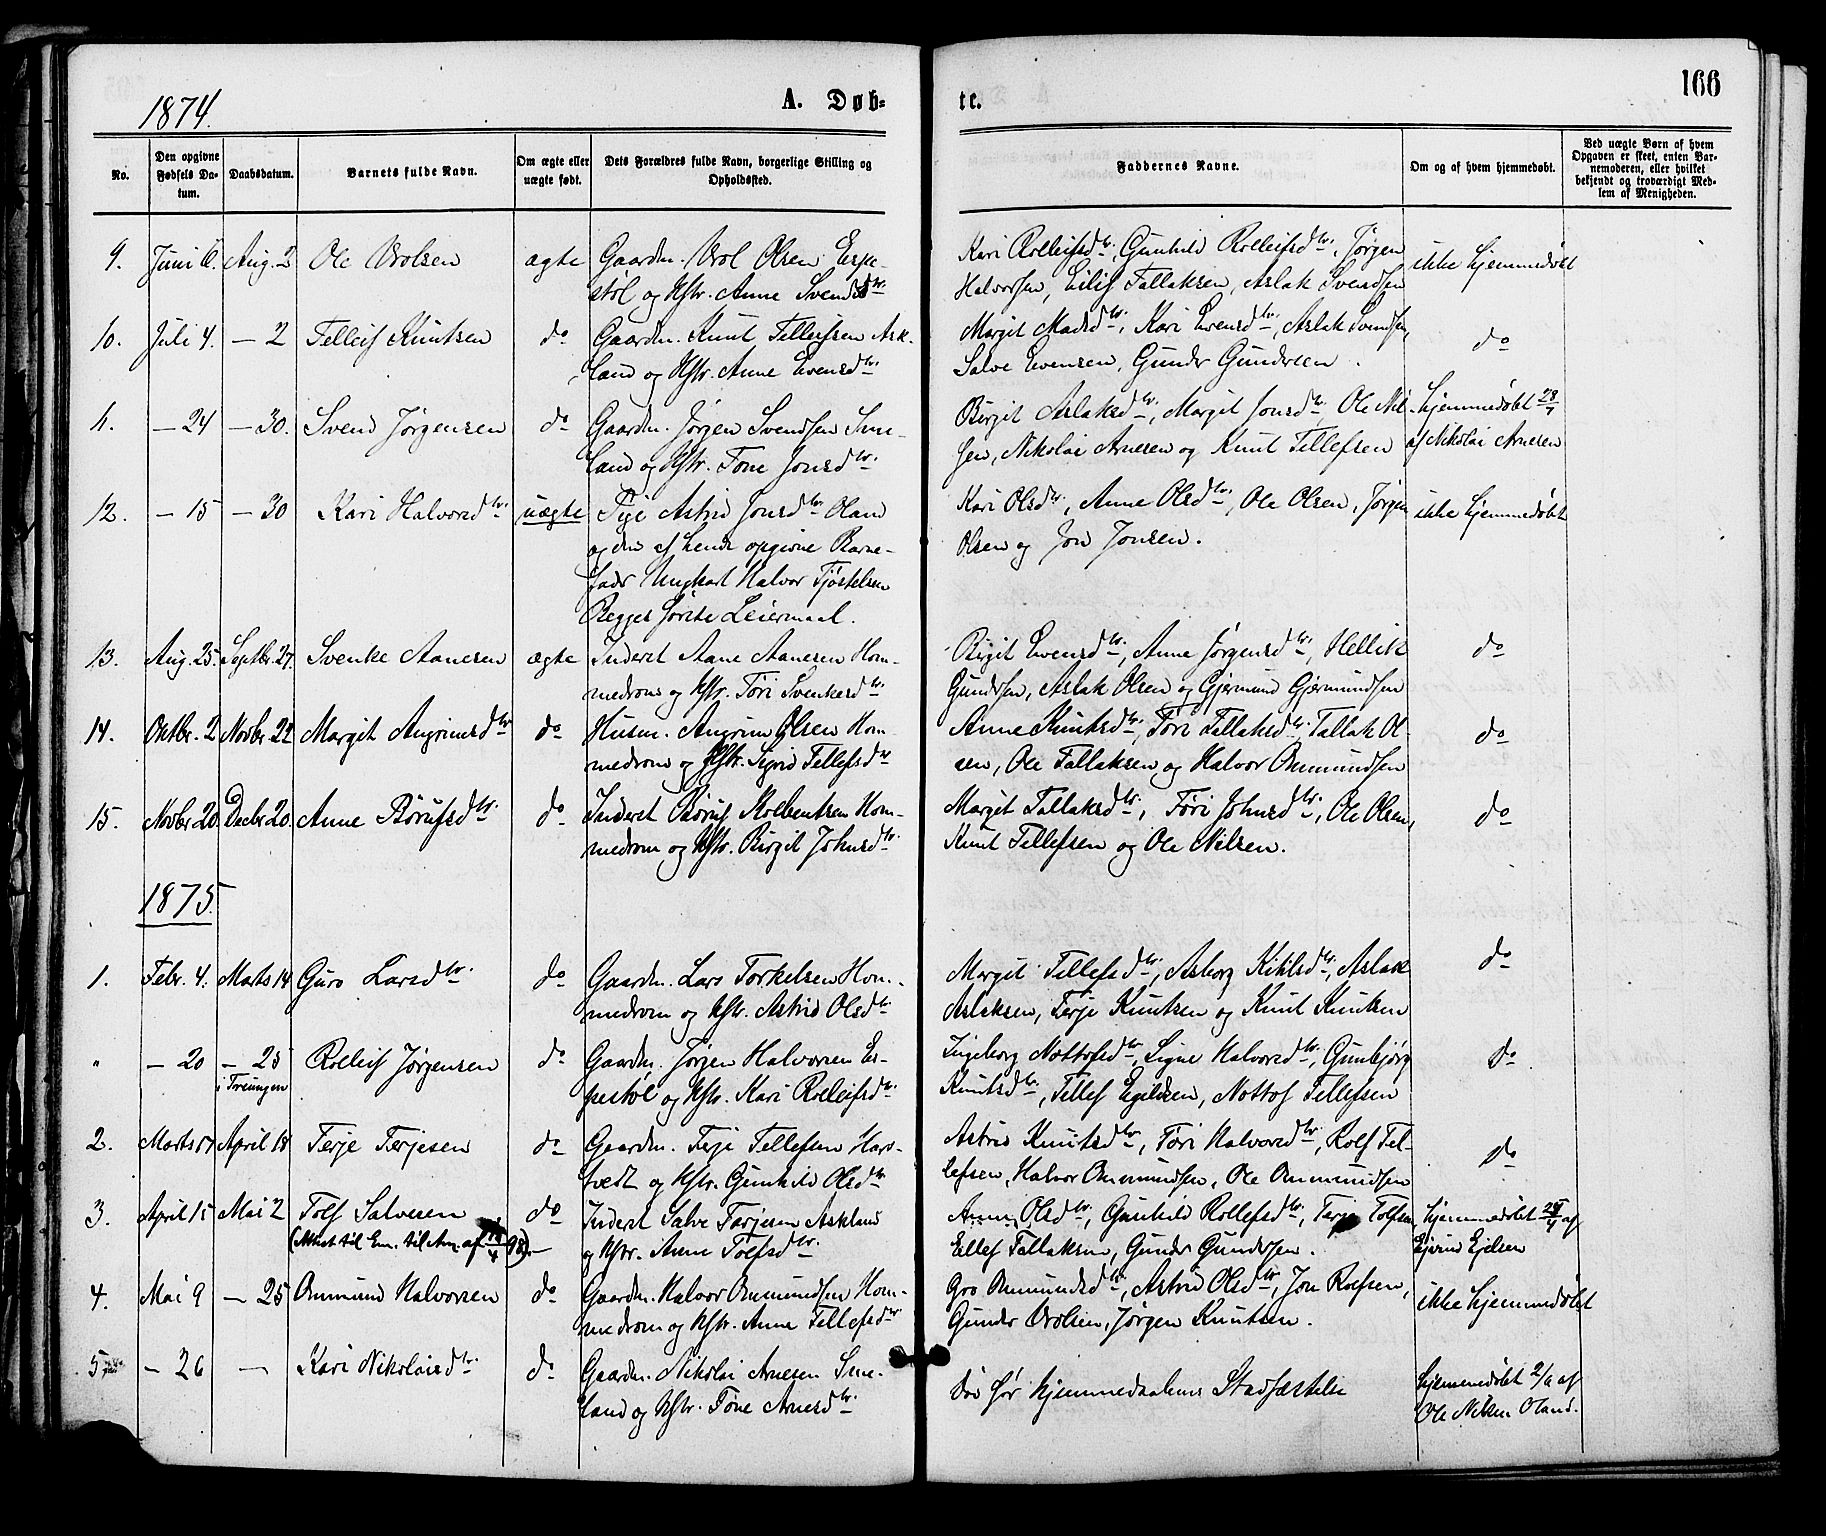 166
1874.
A. Døb-
te.
No.
Den opgivne Fødsels Da-
tum.
Daabsdatum.
Barnets fulde Navn.
Om ægte eller uægte født.
Dets Forældres fulde Navn, borgerlige Stilling og Opholdssted.
Faddernes Navne.
Om og af hvem hjemmedøbt.
Ved uægte Børn af hvem
Opgaven er skeet, enten Bar-
nemoderen, eller hvilket
bekjendt og troværdigt Med-
lem af Menigheden.
9. Juni Aug. 2 Ole Vrolsen ægte Gaardm. Vrol Olsen Espe-
støl og Hstr. Anne Svendsdtr.
Kari Rolleifsdtr., Gunhild Rolleifsdtr., Jørgen
Halvorsen, Eilif Tallaksen, Aslak Svendsen
ikke hjemmedøbt
10. Juli 4. — 2 Telleif Knutsen do Gaardm. Knut Telleifsen Ask-
land og Hstr. Anne Evensdtr.
Margit Madsdtr., Kari Evensdtr., Aslak Svendsen,
Salve Evensen, Gundr Gundersen.
do
11. — 24 — 30. Svend Jørgensen do Gaardm. Jørgen Svendsen Sme-
land og Hstr. Tone Jonsdtr.
Birgit Aslaksdtr., Margit Jonsdtr. Ole Nil-
sen, Nikolai Arnesen og Knut Tellefsen
Hjemmedøbt 28/7
af Nikolai Arnesen
12. — 15 — 30 Kari Halvorsdtr. uægte Pige Astrid Jonsdtr. Oland
og den af hende opgivne Barne-
fadr Ungkarl Halvor Tjøstelsen
Begges første Leiermaal.
Kari Olsdtr., Anne Olsdtr., Ole Olsen, Jørgen
Olsen og Jon Jonsen.
ikke hjemmedøbt
13. Aug. 25. Septbr. 27. Svenke Aanesen ægte Inderst Aane Aanesen Hom-
medrom og Hstr. Tøri Svenkesdtr.
Birgit Evensdtr., Anne Jørgensdtr., Hellik
Gundersen, Aslak Olsen og Gjermund Gjermundsen
do
14. Oktbr. 2 Novbr. 22 Margit Angrimsdtr do Husm. Angrim Olsen Hom-
medrom og Hstr. Sigrid Tellefsdtr
Anne Knutsdtr., Tøri Tallaksdtr., Tallak Ol-
sen, Ole Tallaksen og Halvor Ommundsen
do
15. Novbr. 20. Decbr. 20. Anne Børufsdtr. do Inderst Børuf Kolbentsen Hom-
medrom og Hstr. Birgit Johnsdtr.
Margit Tallaksdtr., Tøri Johnsdtr., Ole Olsen,
Knut Tellefsen og Ole Nilsen.
do
1875.
1. Febr. 4. Marts 14 Guro Larsdtr. do Gaardm. Lars Torkelsen Hom-
medrom og Hstr. Astrid Olsdtr.
Margit Tellefsdtr., Asborg Kitilsdtr., Aslak
Aslaksen, Terje Knutsen og Knut Knutsen
do
" — 20 — 25 Rolleif Jørgensen do Gaardm. Jørgen Halvorsen Es-
i Treungen
pestøl og Hstr. Kari Rolleifsdtr.
Ingeborg Nottofsdtr., Signe Halvorsdtr., Gunbjørg
Knutsdtr., Tellef Egildsen, Nottof Tellefsen
do
2. Marts 17 April 18 Terje Terjesen do Gaardm. Terje Tellefsen Hars-
vedt og Hstr. Gunhild Olsdtr
Astrid Knutsdtr., Tøri Halvorsdtr., Rolf Tel-
lefsen, Halvor Ommundsen, Ole Ommundsen
do
3. April 15 Mai 2 Tolf Salvesen do Inderst Salve Terjesen Askland
(Attest til Em. til Am. af 18/4 98) —
og Hstr. Anne Tolfsdtr.
Anne Olsdtr., Gunhild Rollefsdtr., Terje Tolfsen,
Eilef Tallaksen, Gundr Gundersen.
Hjemmedøbt 28/4 af
Eivind Ejelsen
4. Mai 9 — 25 Ommund Halvorsen do Gaardm. Halvor Ommundsen Hom-
medrom og Hstr. Anne Tellefsdtr
Gro Ommundsdtr., Astrid Olsdtr., Jon Rolfsen,
Gundr Vrolsen, Jørgen Knutsen.
ikke hjemmedøbt
5 — 26 — Kari Nikolaisdtr. do Gaardm. Nikolai Arnesen Sme-
land og Hstr. Tone Arnesdtr.
Død før hjemmedaabens Stadfæstelse
Hjemmedøbt 2/6 af
Ole Nilsen Oland.